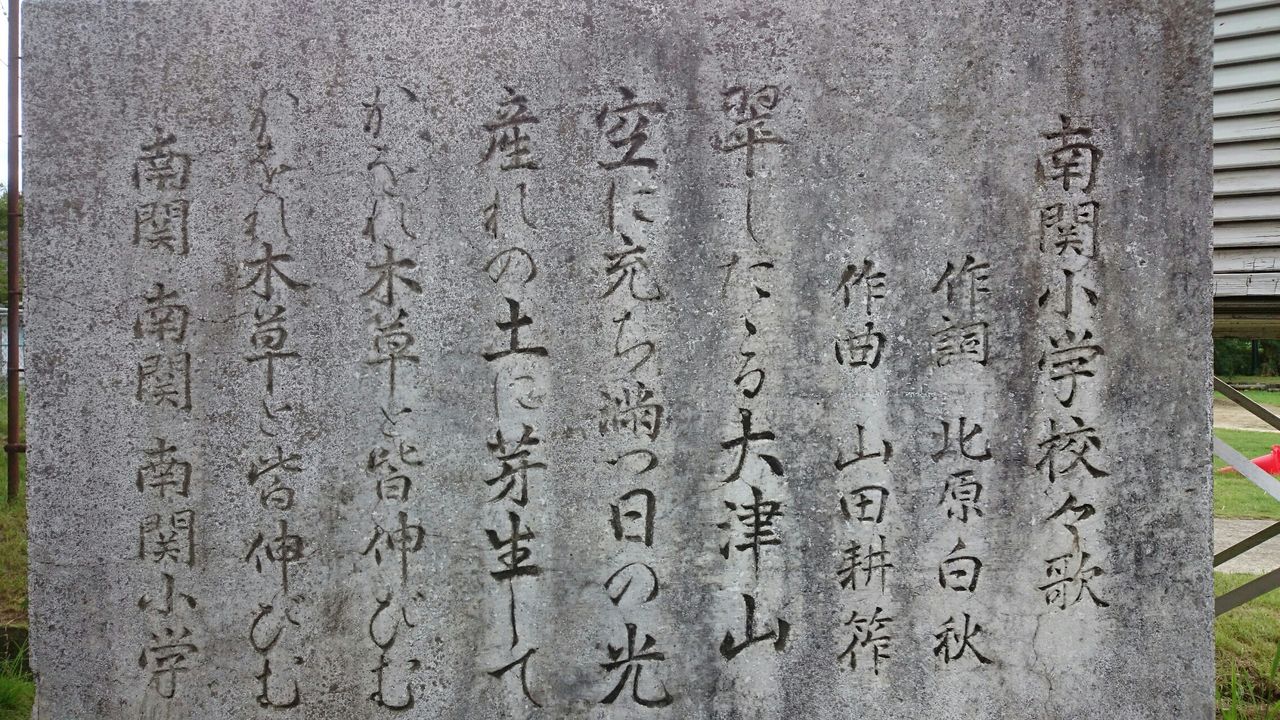 南関小学校々歌
作詞 北原白秋
作曲 山田耕筰
翠したゝる大津山
空に充ち満つ日の光
産れの土に芽生して
かをれ木草と皆伸びむ
かをれ木草と皆伸びむ
南関 南関 南関小学